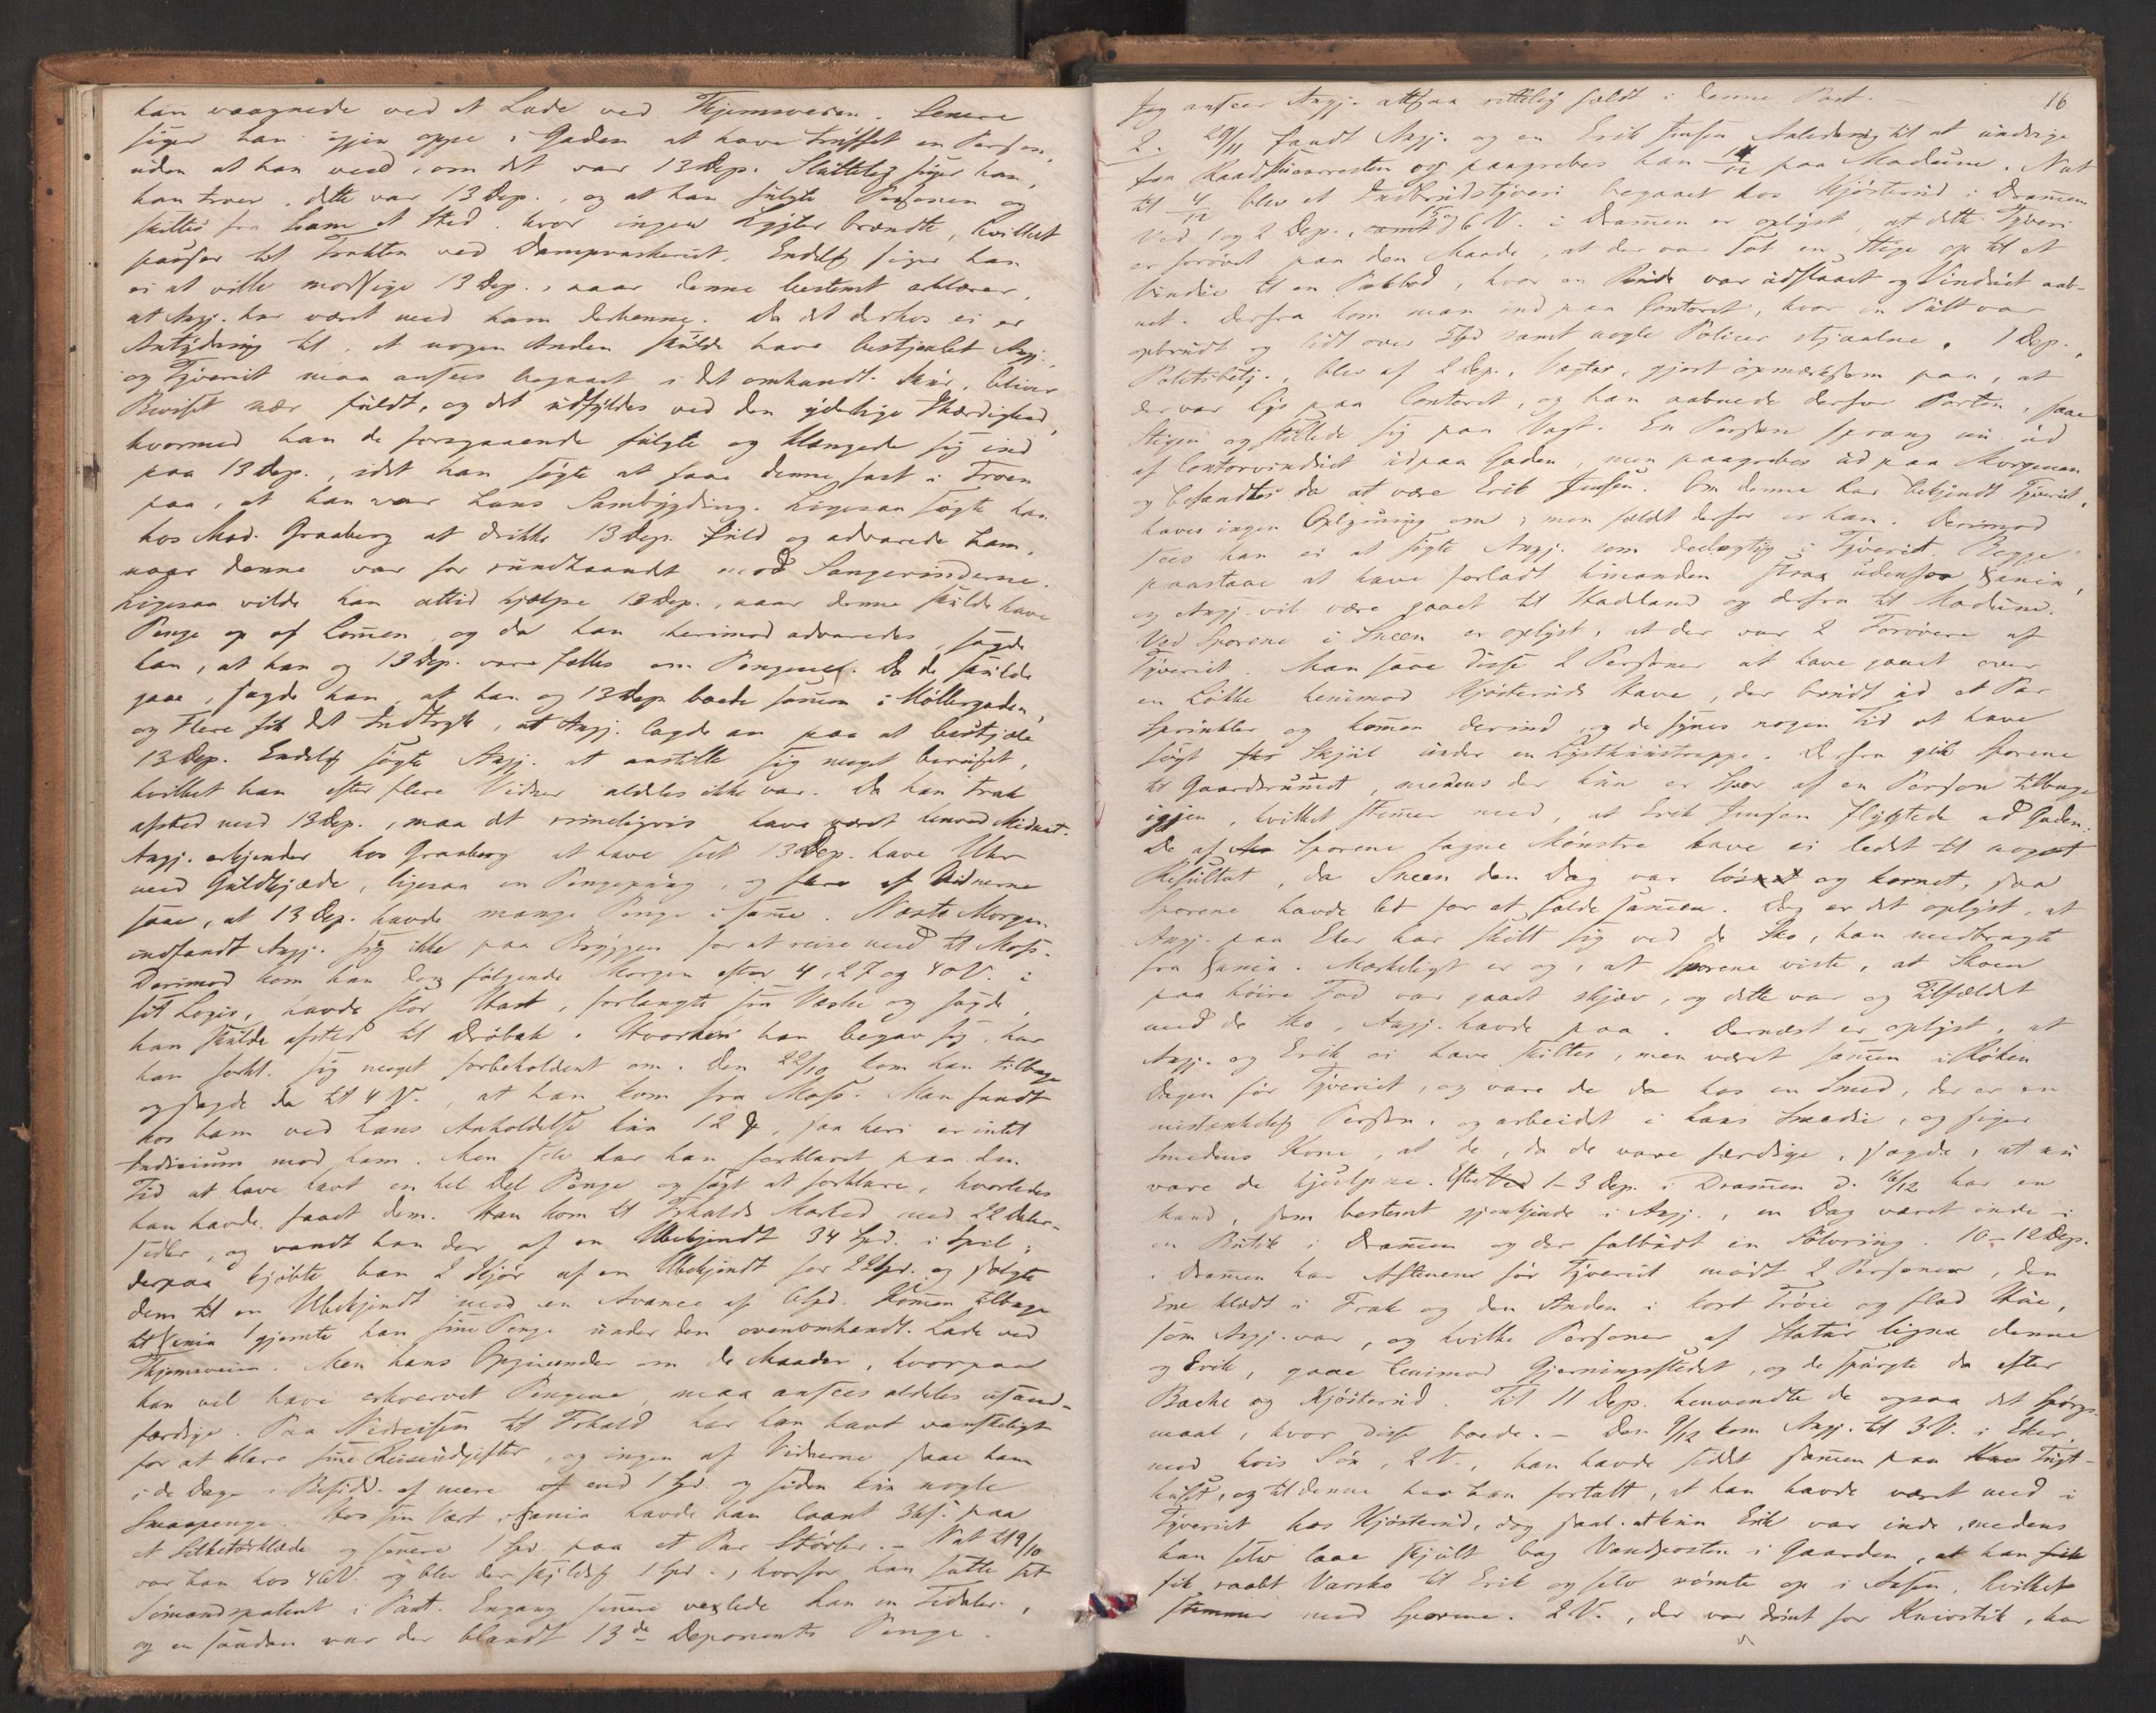 han vaagnede ved et Lade ved Thjemsveien. Senere
siger han igjen oppe i Gaden at have truffet en Person,
uden at han veed, om det var 13 Dep. Sluttelig siger han,
han troer, dette var 13 Dep., og at han fulgte Personen og
skiltes fra ham et Sted, hvor ingen Lygter brændte, hvilket
passer til Trakten ved Dampvaskeriet. Endelig siger han
ei at ville modsige 13 Dep., naar denne bestemt erklærer,
at Angj. har været med ham derhenne. Da det derhos ei er
Antydning til, at nogen Anden skulde have bestjaalet Angj.,
og Tyveriet maa ansees begaaet i det omhandl. Skur, bliver
Beviset nær fuldt, og det udfyldes ved den yderlige Ihærdighed,
hvormed han de foregaaende fulgte og klængede sig ind
paa 13 Dep., idet han søgte at faae denne fast i Troen
paa, at han var hans Sambygding. Ligesaa søgte han
hos Mad. Graaberg at drikke 13 Dep. fuld og advarede ham,
naar denne var for rundhaandet mod Sangerinderne.
Ligesaa vilde han altid hjælpe 13 Dep., naar denne skulde have
Penge op af Lommen, og da han herimod advaredes, sagde
han, at han og 13 Dep. vare fælles om Pengene. Da de skulde
gaae, sagde han, at han og 13 Dep. boede sammen i Møllergaden,
og Flere fik det Indtryk, at Angj. lagde an paa at bestjæle
13 Dep. Endelig søgte Angj. at anstille sig meget beruset,
hvilket han efter flere Vidner aldeles ikke var. Da han trak
afsted med 13 Dep., maa det rimeligvis have været henved Midnat.
Angj. erkjender hos Graaberg at have seet 13 Dep. have Uhr
med Guldkjæde, ligesaa en Pengepung, og flere af Vidnerne
saae, at 13 Dep. havde mange Penge i samme. Næste Morgen
indfandt Angj. sig ikke paa Bryggen for at reise med til Moss.
Derimod kom han den følgende Morgen efter 4, 27 og 40 V. i
sit Logis, havde stor Hast, forlangte sin Vadsæk og sagde,
han skulde afsted til Drøbak. Hvorhen han begav sig, har
han forkl. sig meget forbeholdent om. Den 22/10 kom han tilbage
og sagde da til 4 V., at han kom fra Moss. Man fandt
hos ham ved hans Anholdelse kun 12 β, saa heri er intet
Indicium mod ham. Men selv har han forklaret paa den
Tid at have havt en hel Del Penge og søgt at forklare, hvorledes
han havde faaet dem. Han kom til Frhalds Marked med 22 Daler-
sedler, og vandt han der af en Ubekjendt 34 Spd. i Spil;
derpaa kjøbte han 2 Kjør af en Ubekjendt for 22 Spd. og solgte
dem til en Ubekjendt med en Avance af 6 Spd. Kommen tilbage
til Xania gjemte han sine Penge under den ovenomhandl. Lade ved
Thjemsveien. Men hans Opgivender om de Maader, hvorpaa
han vil have erhvervet Pengene, maa ansees aldeles usand-
færdige. Paa Nedreisen til Frhald har han havt vanskeligt
for at klare sine Reiseudgifter, og ingen af Vidnerne saae ham
i de Dage i Besidd. af mere end 1 Spd. og siden kun nogle
Smaapenge. Hos sin Vært i Xania havde han laant 36 β. paa
et Silketørklæde og senere 1 Spd. paa et Par Støvler. – Nat til 9/10
var han hos 46 V. og blev der skyldig 1 Spd., hvorfor han satte sit
Sømandspatent i Pant. Engang senere vexlede han en Tidaler,
og en saadan var der blandt 13de Deponents Penge.
16
Jeg anseer Angj. altsaa rettelig fældt i denne Post.
2. 29/11 fandt Angj. og en Erik Jensen Anledning til at undvige
fra Raadstuearresten og paagrebes han /12 paa Modum. Nat
til 4/12 blev et Indbrudstyveri begaaet hos Kjøsterud i Drammen
Ved 1 og 2 Dep., samt 15 og 6 V. i Drammen er oplyst, at dette Tyveri
er forøvet paa den Maade, at der var sat en Stige op til et
Vindu til en Pakbod, hvor en Rude var udslaaet og Vinduet aab-
net. Derfra kom man ind paa Contoret, hvor en Pult var
opbrudt og lidt over 5 Spd samt nogle Policer stjaalne. 1 Dep.,
Politibetj., blev af 2 Dep., Vægter, gjort opmærksom paa, at
der var Lys paa Contoret, og han aabnede derfor Porten, saae
Stigen og stillede sig paa Vagt. En Person sprang nu ud
af Contorvinduet ud paa Gaden, men paagrebes ud paa Morgenen
og befandtes da at være Erik Jensen. Om denne har bekjendt Tyveriet,
haves ingen Oplysning om; men fældt derfor er han. Derimod
sees han ei at sigte Angj. som deelagtig i Tyveriet. Begge
paastaae at have forladt hinanden strax udenfor Xania,
og Angj. vil være gaaet til Hadland og derfra til Modum.
Ved Sporene i Sneen er oplyst, at der var 2 Forøvere af
Tyveriet. Man saae disse 2 Personer at have gaaet over
en Løkke henimod Kjøsteruds Have, der brudt ud et Par
Sprinkler og kommen derind, og de synes nogen Tid at have
søgt Skjul under en Lysthustrappe. Derfra gik Sporene
til Gaardsrummet, medens der kun er Spor af en Person tilbage
igjen, hvilket stemmer med, at Erik Jensen flygtede ad Gaden.
De af Sporene tagne Mønstre have ei ledet til noget
Resultat, da Sneen den Dag var løs og kornet, saa
Sporene havde let for at falde sammen. Dog er det oplyst, at
Angj. paa Eker har skilt sig ved de Sko, han medbragte
fra Xania. Mærkeligt er og, at Sporene viste, at Skoen
paa høire Fod var gaaet skjæv, og dette var og Tilfældet
med de Sko, Angj. havde paa. Dernæst er oplyst, at
Angj. og Erik ei have skiltes, men været sammen i Røken
Dagen før Tyveriet, og vare de da hos en Smed, der er en
mistænkelig Person, og arbeidet i hans Smedie, og siger
Smedens Kone, at de, da de vare færdige, sagde, at nu
vare de hjulpne. Efter 1–3 Dep. i Drammen d. 16/12 har en
Mand, som bestemt gjenkjendes i Angj., en Dag været inde i
en Butik i Drammen og der falbudt en Sølvring. 10–12 Dep.
i Drammen har Aftenen før Tyveriet mødt 2 Personer, den
Ene klædt i Frak og den Anden i kort Trøie og flad Hue,
som Angj. var, og hvilke Personer af Statur ligne denne
og Erik, gaae henimod Gjerningsstedet, og de spurgte da efter
Bache og Kjøsterud. Til 11 Dep. henvendte de ogsaa det Spørgs-
maal, hvor disse boede. – Den 9/12 kom Angj. til 3 V. i Eker,
med hvis Søn, 2 V., han havde siddet sammen paa Tugt-
huset, og til denne har han fortalt, at han havde været med i
Tyveriet hos Kjøsterud, dog saal. at kun Erik var inde, medens
han selv laae skjult bag Vandposten i Gaarden, at han
fik raabt Varsko til Erik og selv rømte op i Aasen, hvilket
stemmer med Sporene. 2 V., der var dømt for Knivstik, har